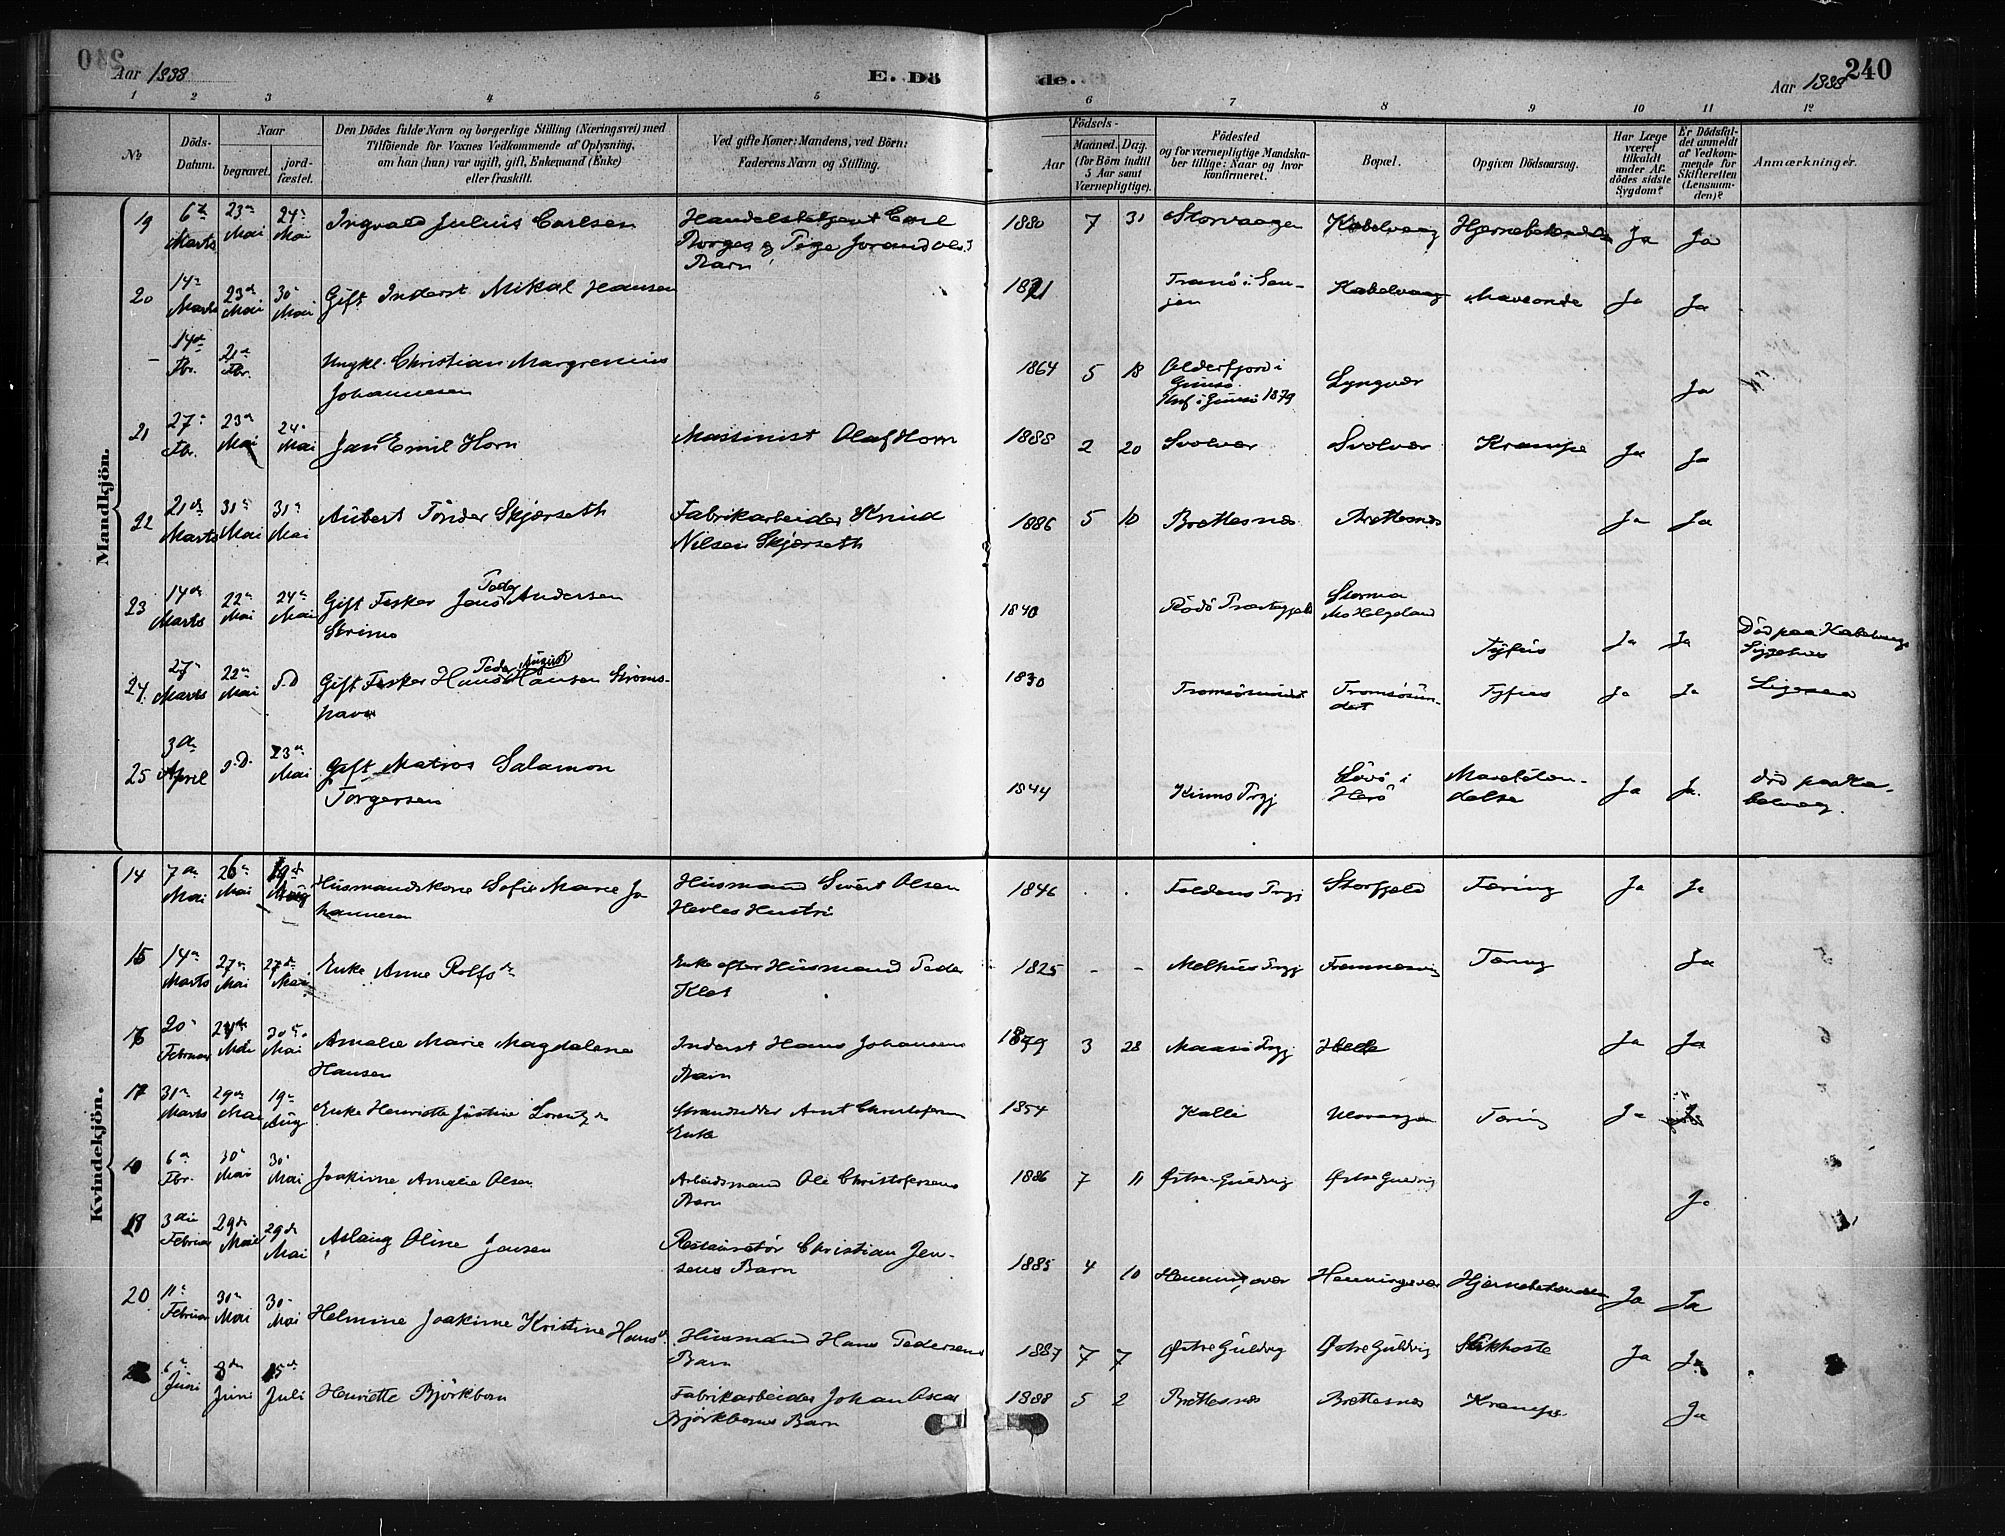 Aar 1888
E. Dö
de.
Aar 1888
240
1 2 3 4 5 6 7 8 9 10 11 12
No
Döds-
Datum.
Naar
begravet.
jord-
fæstet.
Den Dödes fulde Navn og borgerlige Stilling (Næringsvei) med
Tilföiende for Voxnes Vedkommende af Oplysning,
om han (hun) var ugift, gift, Enkemand (Enke)
eller fraskilt.
Ved gifte Koner: Mandens, ved Börn:
Faderens Navn og Stilling.
Födsels-
Aar
Maaned. Dag.
(for Börn indtil
5 Aar samt
Værnepligtige).
Födested
og for værnepligtige Mandska-
ber tillige: Naar og hvor
konfirmeret.
Bopæl.
Opgiven Dödsaarsag.
Har Læge
været
tilkaldt
under Af-
dödes sidste
Sygdom?
Er Dödsfal-
det anmeldt
af Vedkom-
mende for
Skifteretten
(Lensman-
den)?
Anmærkninger.
Mandkjön.
19 6te Marts 23de Mai 24de Mai Ingvald Julius Carlsen Handelsbetjent Carl
Borges og Pige
Barn 1880 7 31 Storvaagen Kabelvaag Ja Ja
20 14de Marts 23de Mai 30 Mai Gift Inderst Mikal Hansen Tranö i Sen-
jen Kabelvaag Maveonde Ja Ja
14de Fbr. 21de Fbr. Ungkl. Christian Margrenius
Johannesen 1864 5 18 Olderfjord i
Gimsö
Konf i Gimsö 1879 Lyngvær Ja
21 27 Fbr. 23de Mai 24de Mai Jan Emil Horn Maskinist Olaf Horn 1888 2 20 Svolvær Svolvær Krampe Ja Ja
22 21de Marts 31 Mai 31 Mai Aubert Tönder Skjærseth Fabrikarbeider Knud
Nilsen Skjærseth 1886 5 10 Brettesnæs Brettesnæs Ja Ja
23 14de Marts 22de Mai 24de Mai Gift Fisker Jens Peder Andersen
Strimo 1840 Rödö Præstegjeld
Mo Helgeland Tyfus Ja Ja Död paa Kabelvaags
Sygehus
24 27 Marts 22de Mai S.D. Gift Fisker Hans Peder August Hansen Ströms-
havn 1830 Tromsösundet Tromsösun-
det Tyfus Ja Ja Ligesaa
25 3de April S.D. 23de Mai Gift Matros Salamon
Torgersen 1844 Kinns Prgj
Herö Ja Ja död paa Ka-
belvaag.
Kvindekjön.
14 7de Mai 26 Mai 19de Aug Husmandskone Sofie Marie Jo
hannesen Husmand Sivert Olsen
Hustru 1846 Foldens Prgj Storfjeld Tæring Ja Ja
15 14de Marts 27de Mai 27de Mai Enke Anne Rolfsdr Enke efter Husmand Peder
Klet 1825 - - Melhus Prgj Tæring Ja
16 20 Februar Mai 30 Mai Amalie Marie Magdalene
Hansen Inderst Hans Johansens
Barn 1879 3 28 Maasö Prgj Ja Ja
17 31te Marts 29de Mai 19de Aug Enke Henriette Justine Lorentzdr Strandsidder Arnt Christofersens
Enke 1854 Kalle Tæring Ja Ja
6te Fbr. 30 Mai 30 Mai Joakime Amalie Olsen Arbeidsmand Ole Christofersens
Barn 1886 7 11 Östre Guldvig Östre Guldvig Ja
3die Februar 29de Mai 29de Mai Aslaug Oline Jensen Restauratör Christian Jen-
sens Barn 1885 4 10 Henningsvær Henningsvær Ja Ja
20 11te Februar 30te Mai 30 Mai Helmine Joakime Kristine Hansdr Husmand Hans Pedersens
Barn 1887 7 7 Östre Guldvig Östre Guldvig Kikhoste Ja Ja
6te Juni 8de Juni 15de Juli Henriette Björkbom Fabrikarbeider Johan Oscar
Björkboms Barn 1888 5 2 Brettesnæs Brettesnæs Krampe Ja